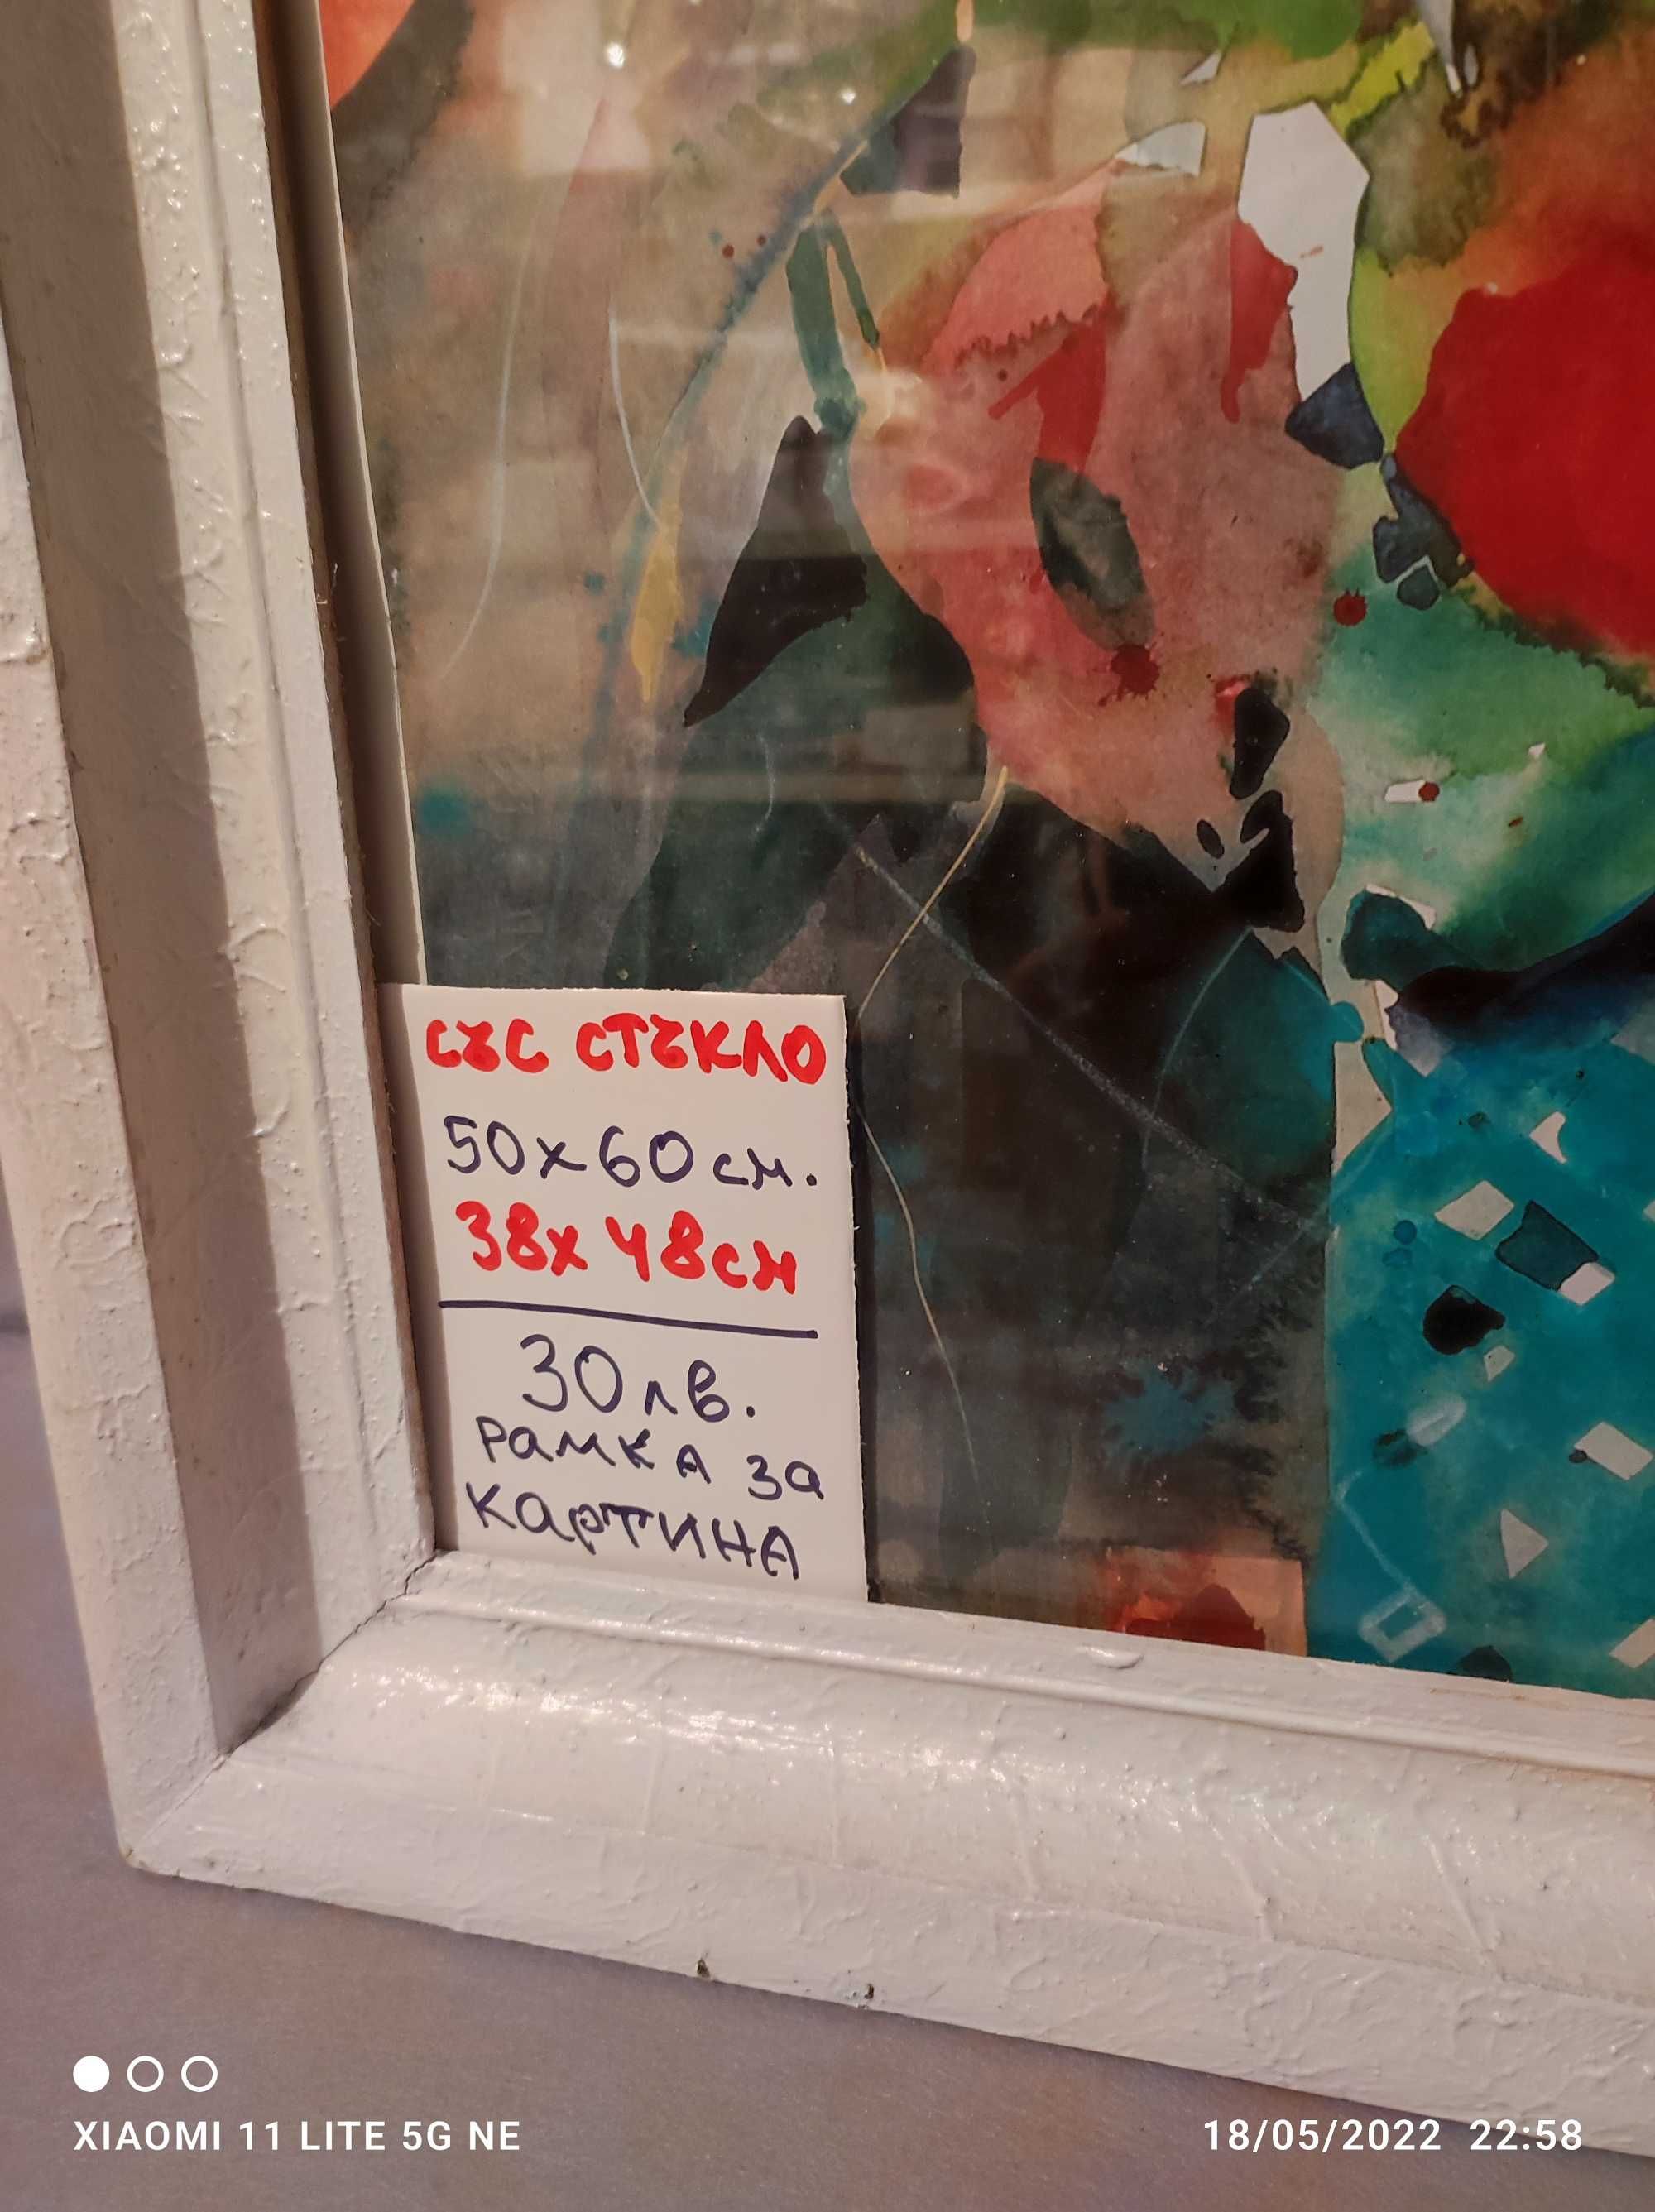 СЪС СТЪКЛО
50х60 см.
38х 48см
30 лв.
РАМКА ЗА
КАРТИНА
XIAOMI 11 LITE 5G NE
18/05/2022 22:58